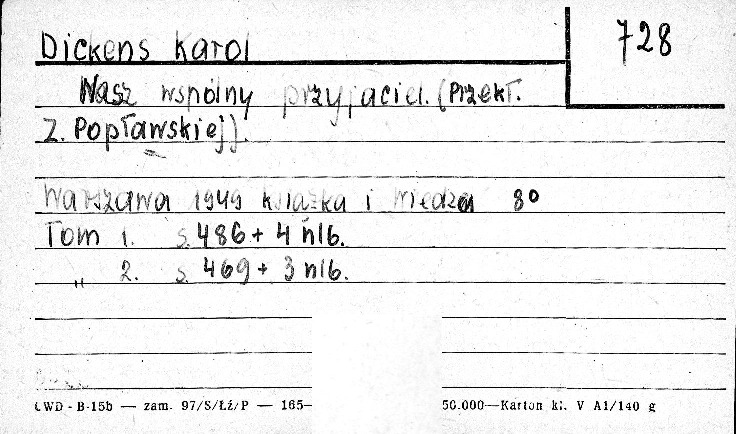 728
Dickens Karol
Nasz wspólny przyjaciel. (Przekł.
Z. Popławskiej).
Warszawa 1949 książka i wiedza 8°
Tom 1. s. 486 + 4 nlb.
„ 2. s. 469 + 3 nlb.
CWD - B-15b — zam. 97/S/Łź/P — 165— 50.000—Karton kl. V A1/140 g